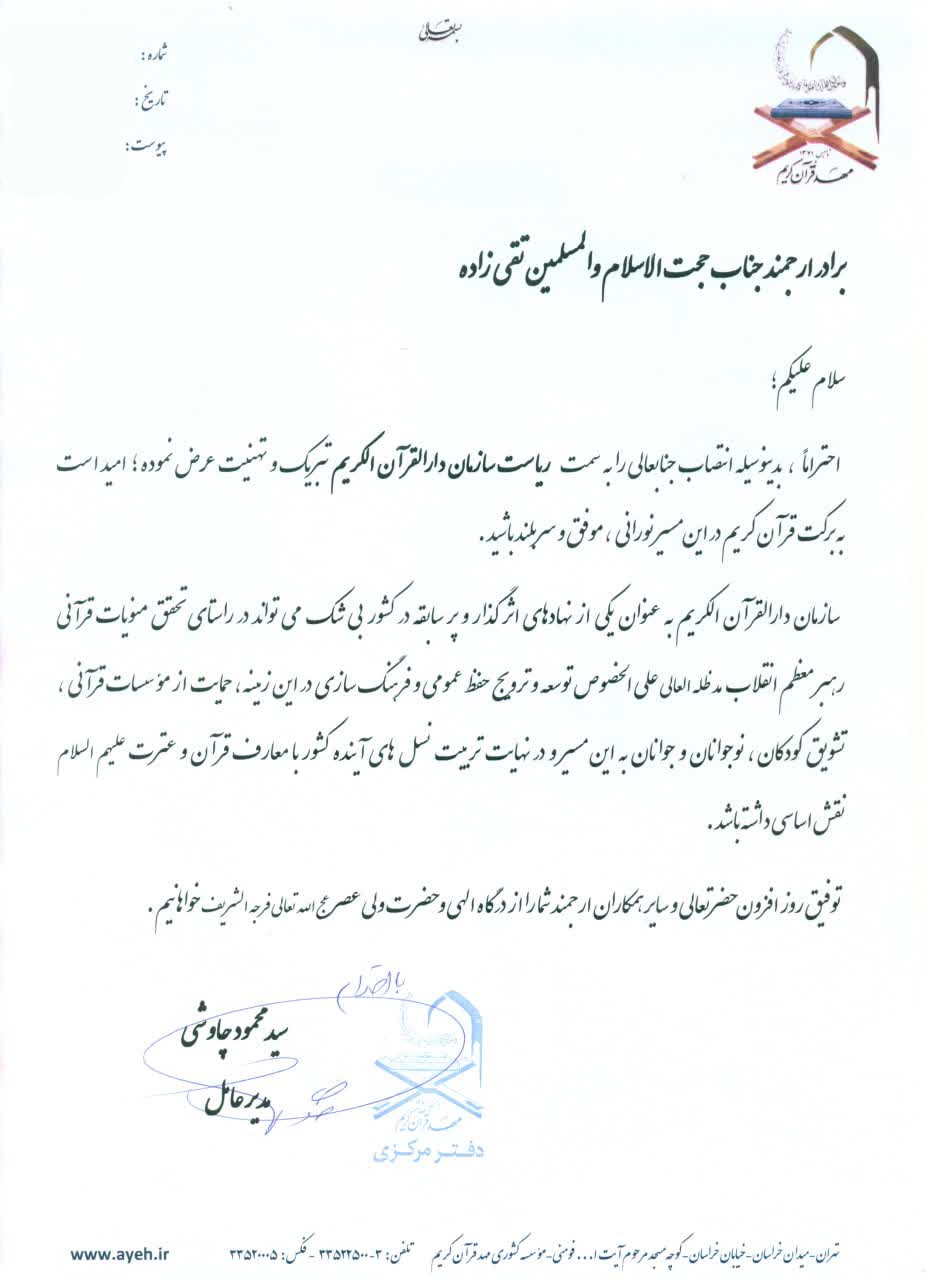 بسمه تعالی
شماره :
تاریخ :
پیوست :
تاسیس ۱۳۷۱
مهد قرآن کریم
برادر ارجمند جناب حجت الاسلام والمسلمین تقی زاده
سلام علیکم؛
احتراماً ، بدینوسیله انتصاب جنابعالی را به سمت ریاست سازمان دارالقرآن الکریم تبریک و تهنیت عرض نموده ؛ امید است
به برکت قرآن کریم در این مسیر نورانی ، موفق و سربلند باشید .
سازمان دارالقرآن الکریم به عنوان یکی از نهادهای اثرگذار و پر سابقه در کشور بی شک می تواند در راستای تحقق منویات قرآنی
رهبر معظم انقلاب مدظله العالی علی الخصوص توسعه و ترویج حفظ عمومی و فرهنگ سازی در این زمینه ، حمایت از مؤسسات قرآنی ،
تشویق کودکان ، نوجوانان و جوانان به این مسیر و در نهایت تربیت نسل های آینده کشور با معارف قرآن و عترت علیهم السلام
نقش اساسی داشته باشد .
توفیق روز افزون حضرتعالی و سایر همکاران ارجمند شما را از درگاه الهی و حضرت ولی عصر عج الله تعالی فرجه الشریف خواهانیم .
با احترام
سید محمود چاوشی
مدیرعامل
مهد قرآن کریم
دفتر مرکزی
تهران-میدان خراسان-خیابان خراسان-کوچه مسجد مرحوم آیت ا... فومنی-مؤسسه کشوری مهد قرآن کریم تلفن: ۳-۳۳۵۲۲۵۰۰ - فکس: ۳۳۵۲۰۰۰۵ www.ayeh.ir